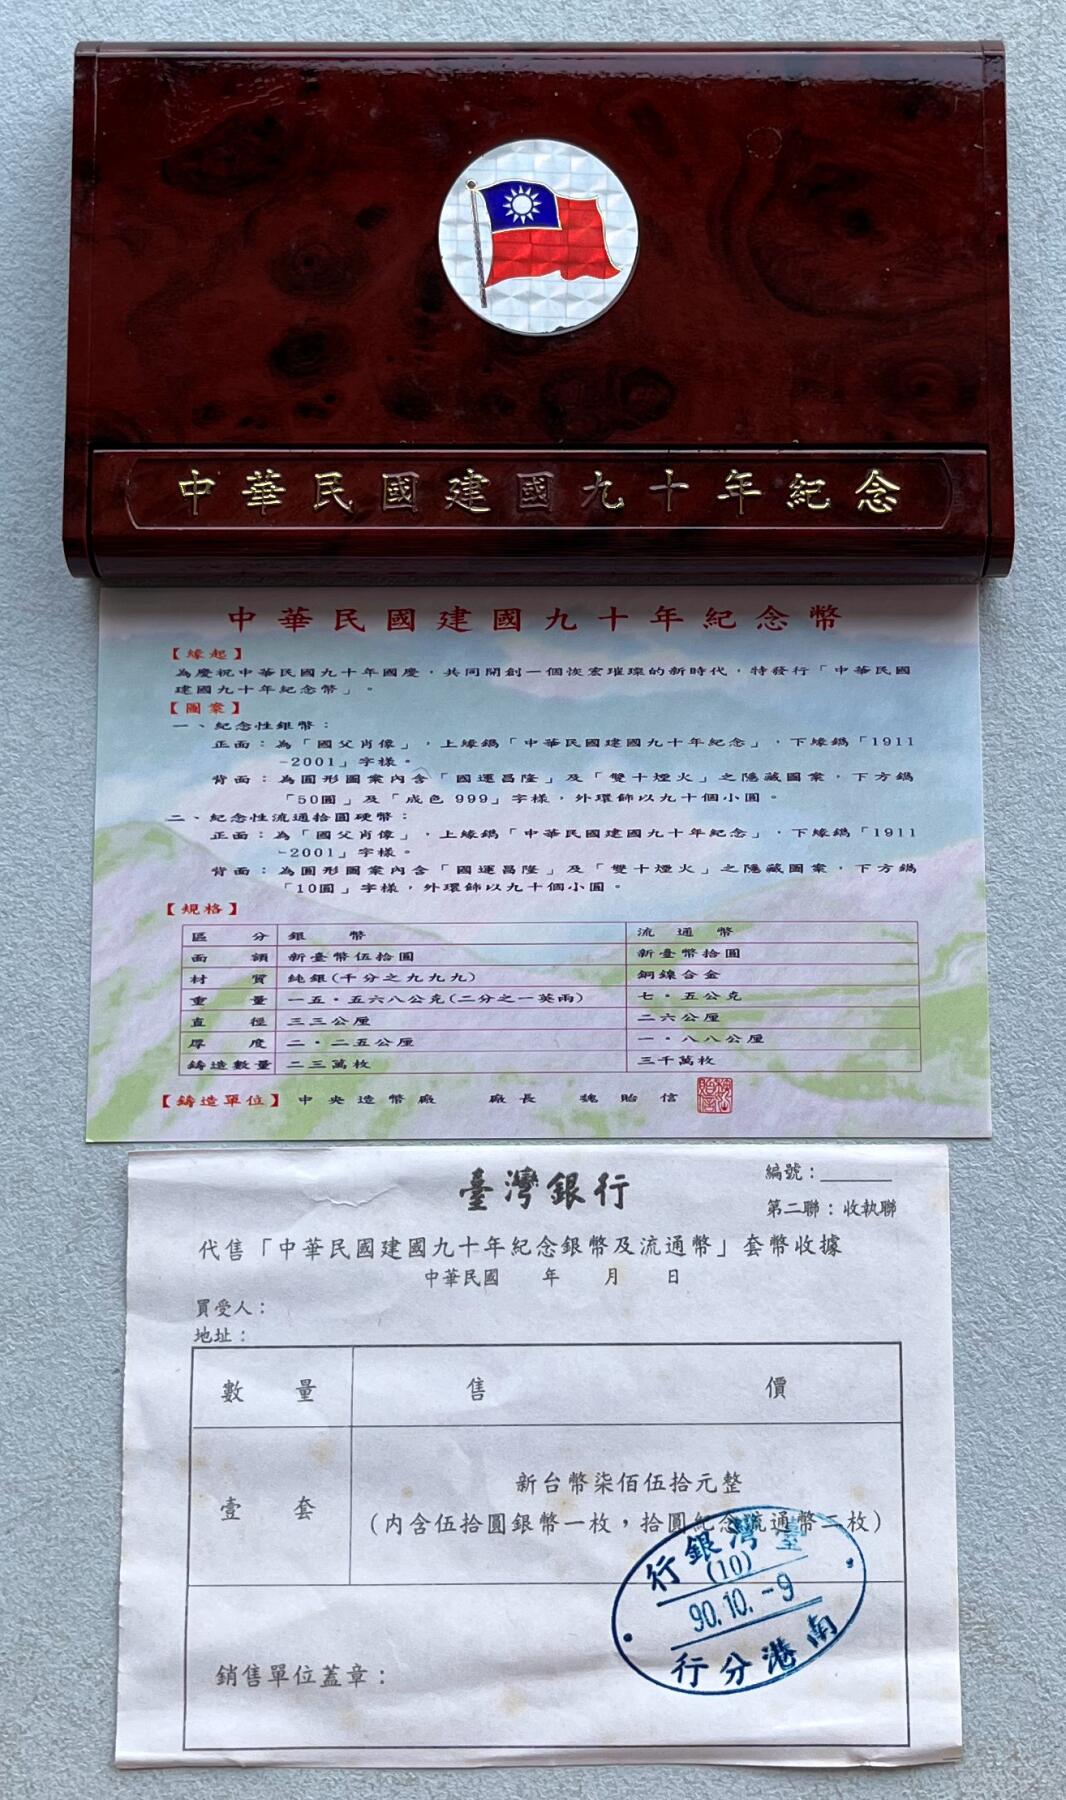 中華民國建國九十年紀念
中華民國建國九十年紀念幣
【緣起】
為慶祝中華民國九十年國慶，共同開創一個恢宏璀璨的新時代，特發行「中華民國
建國九十年紀念幣」。
【圖案】
一、紀念性銀幣：
正面：為「國父肖像」，上緣鐫「中華民國建國九十年紀念」，下緣鐫「1911
-2001」字樣。
背面：為圓形圖案內含「國運昌隆」及「雙十煙火」之隱藏圖案，下方鐫
「50圓」及「成色 999」字樣，外環飾以九十個小圓。
二、紀念性流通拾圓硬幣：
正面：為「國父肖像」，上緣鐫「中華民國建國九十年紀念」，下緣鐫「1911
-2001」字樣。
背面：為圓形圖案內含「國運昌隆」及「雙十煙火」之隱藏圖案，下方鐫
「10圓」字樣，外環飾以九十個小圓。
【規格】
區分 銀幣 流通幣
面額 新臺幣伍拾圓 新臺幣拾圓
材質 純銀(千分之九九九) 銅鎳合金
重量 一五．五六八公克(二分之一英兩) 七．五公克
直徑 三三公厘 二六公厘
厚度 二．二五公厘 一．八八公厘
鑄造數量 二三萬枚 三千萬枚
【鑄造單位】中央造幣廠 廠長 魏貽信
臺灣銀行
編號：
第二聯：收執聯
代售「中華民國建國九十年紀念銀幣及流通幣」套幣收據
中華民國 年 月 日
買受人：
地址：
數量 售價
壹套 新台幣柒佰伍拾元整
(內含伍拾圓銀幣一枚，拾圓紀念流通幣二枚)
臺灣銀行
(10)
90.10.-9
南港分行
銷售單位蓋章：